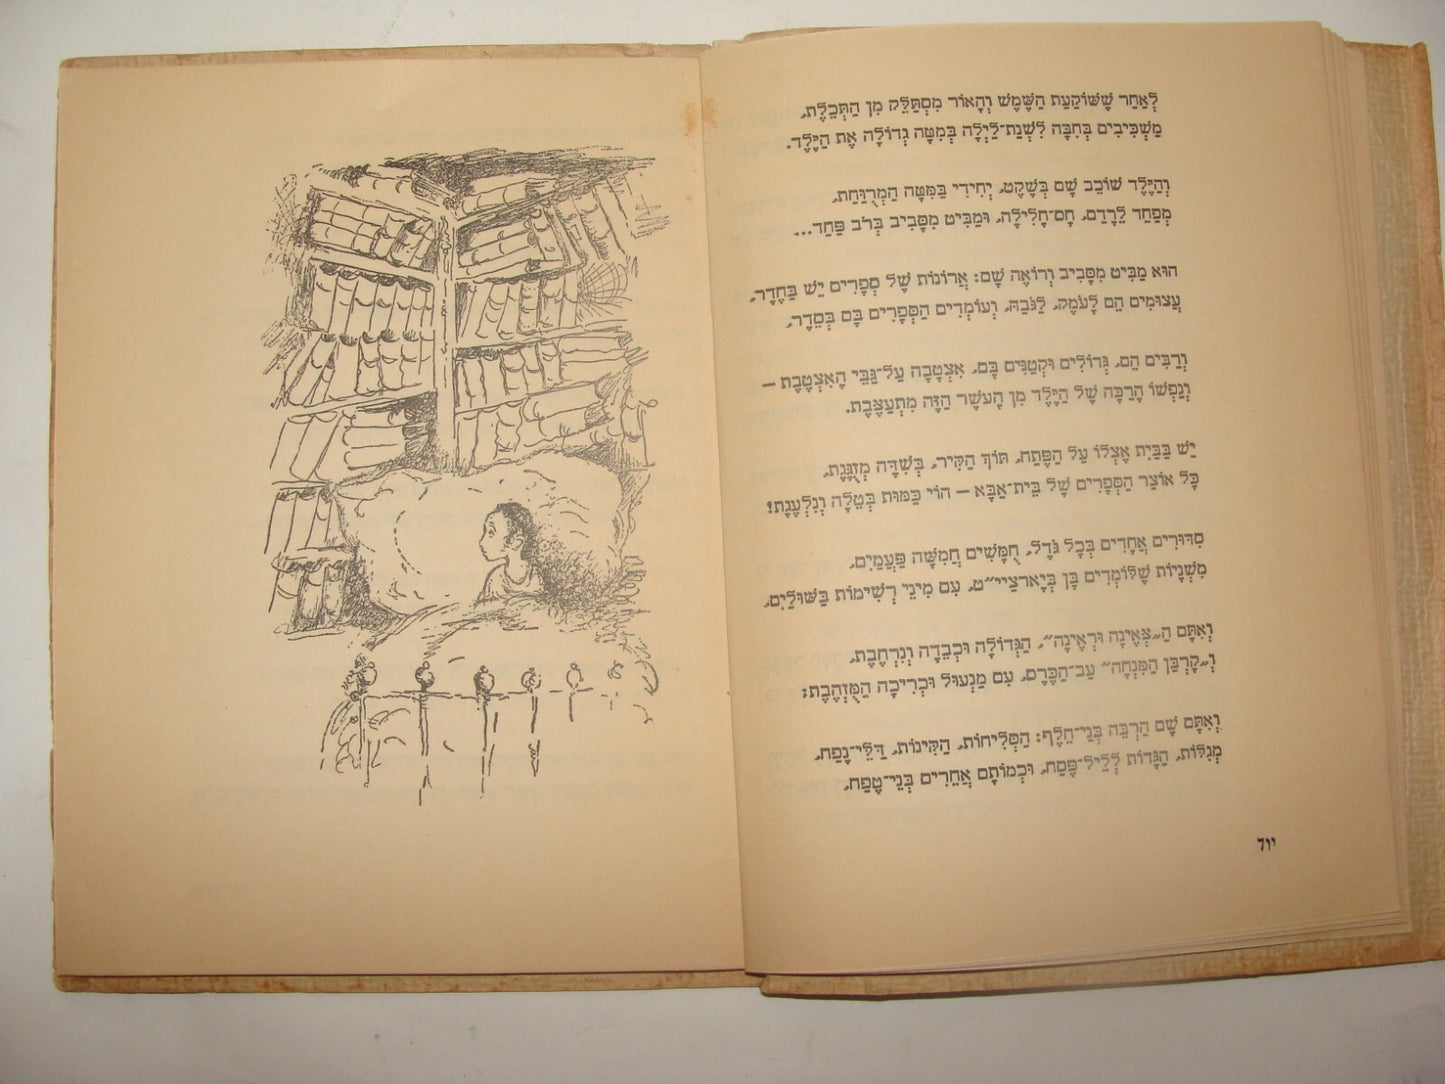 לְאַחַר שֶׁשּׁוֹקַעַת הַשֶּׁמֶשׁ וְהָאוֹר מִסְתַּלֵּק מִן הַתְּכֵלֶת,
מַשְׁכִּיבִים בְּחִבָּה לִשְׁנַת־לַיְלָה בְּמִטָּה גְדוֹלָה אֶת הַיֶּלֶד.
וְהַיֶּלֶד שׁוֹכֵב שָׁם בְּשֶׁקֶט, יְחִידִי בַּמִּטָּה הַמְרֻוַּחַת,
מְפַחֵד לֵרָדֵם, חַס־חָלִילָה, וּמַבִּיט מִסָּבִיב בְּרֹב פַּחַד...
הוּא מַבִּיט מִסָּבִיב וְרוֹאֶה שָׁם: אֲרוֹנוֹת שֶׁל סְפָרִים יֵשׁ בַּחֶדֶר,
עֲצוּמִים הֵם לָעֹמֶק, לַגֹּבַהּ, וְעוֹמְדִים הַסְּפָרִים בָּם בְּסֵדֶר,
וְרַבִּים הֵם, גְּדוֹלִים וּקְטַנִּים בָּם, אִצְטַבָּה עַל־גַּבֵּי הָאִצְטֶבֶת —
וְנַפְשׁוֹ הָרַכָּה שֶׁל הַיֶּלֶד מִן הָעֹשֶׁר הַזֶּה מִתְעַצֶּבֶת.
יֵשׁ בַּבַּיִת אֶצְלוֹ עַל הַפֶּתַח, תּוֹךְ הַקִּיר, בְּשִׁדָּה מְזֻגֶּגֶת,
כָּל אוֹצַר הַסְּפָרִים שֶׁל בֵּית־אַבָּא — הוֹי כַּמּוּת בְּטֵלָה וְנִלְעֶגֶת!
סִדּוּרִים אֲחָדִים בְּכָל גֹּדֶל, חֻמָּשִׁים חֲמִשָּׁה פַּעֲמַיִם,
מִשְׁנָיוֹת שֶׁלּוֹמְדִים בָּן בְּיָארצַיי״ט, עִם מִינֵי רְשִׁימוֹת בַּשּׁוּלַיִם,
וְאִתָּם הַ״צְּאֶינָה וּרְאֶינָה״, הַגְּדוֹלָה וּכְבֵדָה וְנִרְחֶבֶת,
וְ״קָרְבַּן הַמִּנְחָה״ עַב־הַכֶּרֶס, עִם מַנְעוּל וּכְרִיכָה הַמֻּזְהֶבֶת;
וְאִתָּם שָׁם הַרְבֵּה בְּנֵי־חֵלֶף: הַסְּלִיחוֹת, הַקִּינוֹת, דַּלֵּי־נָפַח,
מְגִלּוֹת, הַגָּדוֹת לְלֵיל־פֶּסַח, וּכְמוֹתָם אֲחֵרִים בְּנֵי־טֶפַח,
יוד